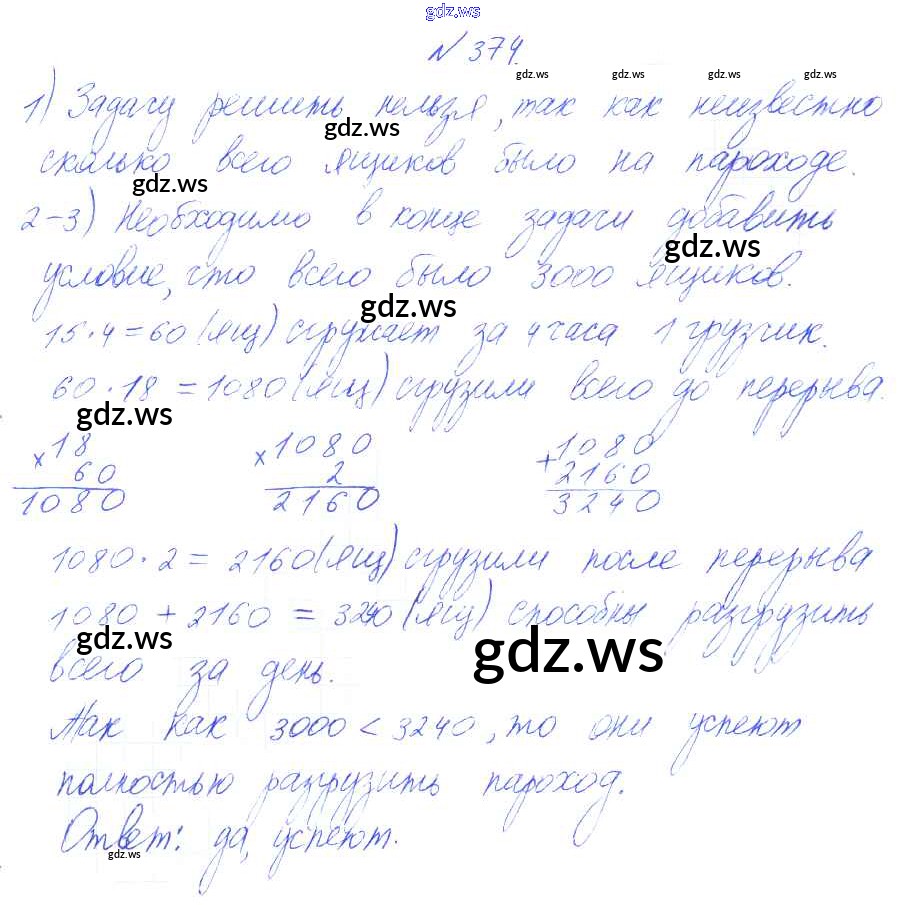 gdz.ws
№ 374.
gdz.ws gdz.ws gdz.ws gdz.ws
1) Задачу решить нельзя, так как неизвестно
gdz.ws
сколько всего ящиков было на пароходе.
gdz.ws
2-3) Необходимо в конце задачи добавить
gdz.ws
условие, что всего было 3000 ящиков.
gdz.ws
15·4=60 (ящ) сгружает за 4 часа 1 грузчик.
60·18=1080 (ящ) сгрузили всего до перерыва.
gdz.ws
18 1080 1080
× 60 × 2 + 2160
1080 2160 3240
1080·2=2160 (ящ) сгрузили после перерыва
1080+2160=3240 (ящ) способны разгрузить
gdz.ws gdz.ws
всего за день.
Так как 3000<3240, то они успеют
полностью разгрузить пароход.
Ответ: да, успеют.
gdz.ws